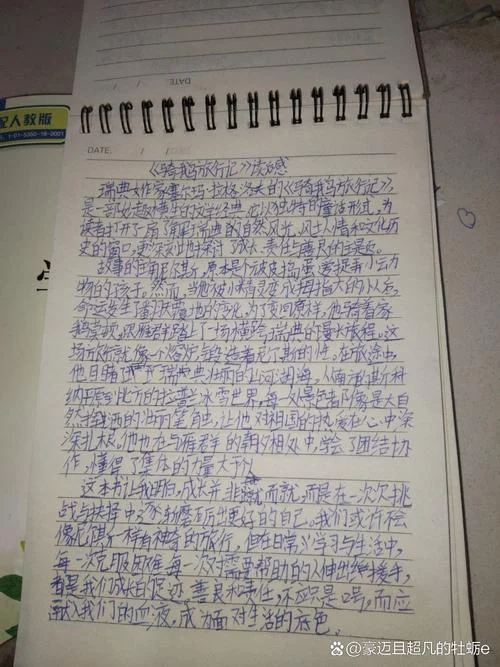 DATE
配人教版
DATE.
《骑鹅旅行记》读后感
瑞典女作家塞尔玛·拉格洛夫的《骑鹅旅行记》,
是一部妙趣横生的文学经典,它以独特的童话形式,为
读者打开了一扇了解瑞典的自然风光,风土人情和文化历
史的窗口,更深刻地探讨了成长、责任与善良的主题。
故事的主角尼尔斯,原本是个顽皮捣蛋喜捉弄小动
物的孩子。然而,当他被小精灵变成拇指大的小人后,
命运发生了翻天覆地的变化,为了变回原样,他骑着家
鹅莫顿,跟雁群踏上了一场横跨瑞典的漫长旅程。这
场旅行就像一个熔炉,锻造着尼尔斯的性。在旅途中,
他目睹了瑞典壮丽的山河湖海,从南
到北方的拉普兰冰雪世界,每一处景色都像是大自
然挥洒的壮丽笔触,让他对祖国的热爱在心中深
深扎根。他也在与雁群的朝夕相处中,学会了团结协
作,懂得了集体的力量大于个
这本书让我明白,成长并非一蹴而就,而是在一次次挑
战与抉择中,逐渐磨砺出更好的自己。我们或许不会
像尼尔斯一样有神奇的旅行,但在日常学习与生活中,
每一次克服困难,每一次对需要帮助的人伸出援手,
都是我们成长的足迹,善良和责任,不应只是口号,而应
融入我们的血液,成为面对生活的底色。
@豪迈且超凡的牡蛎e